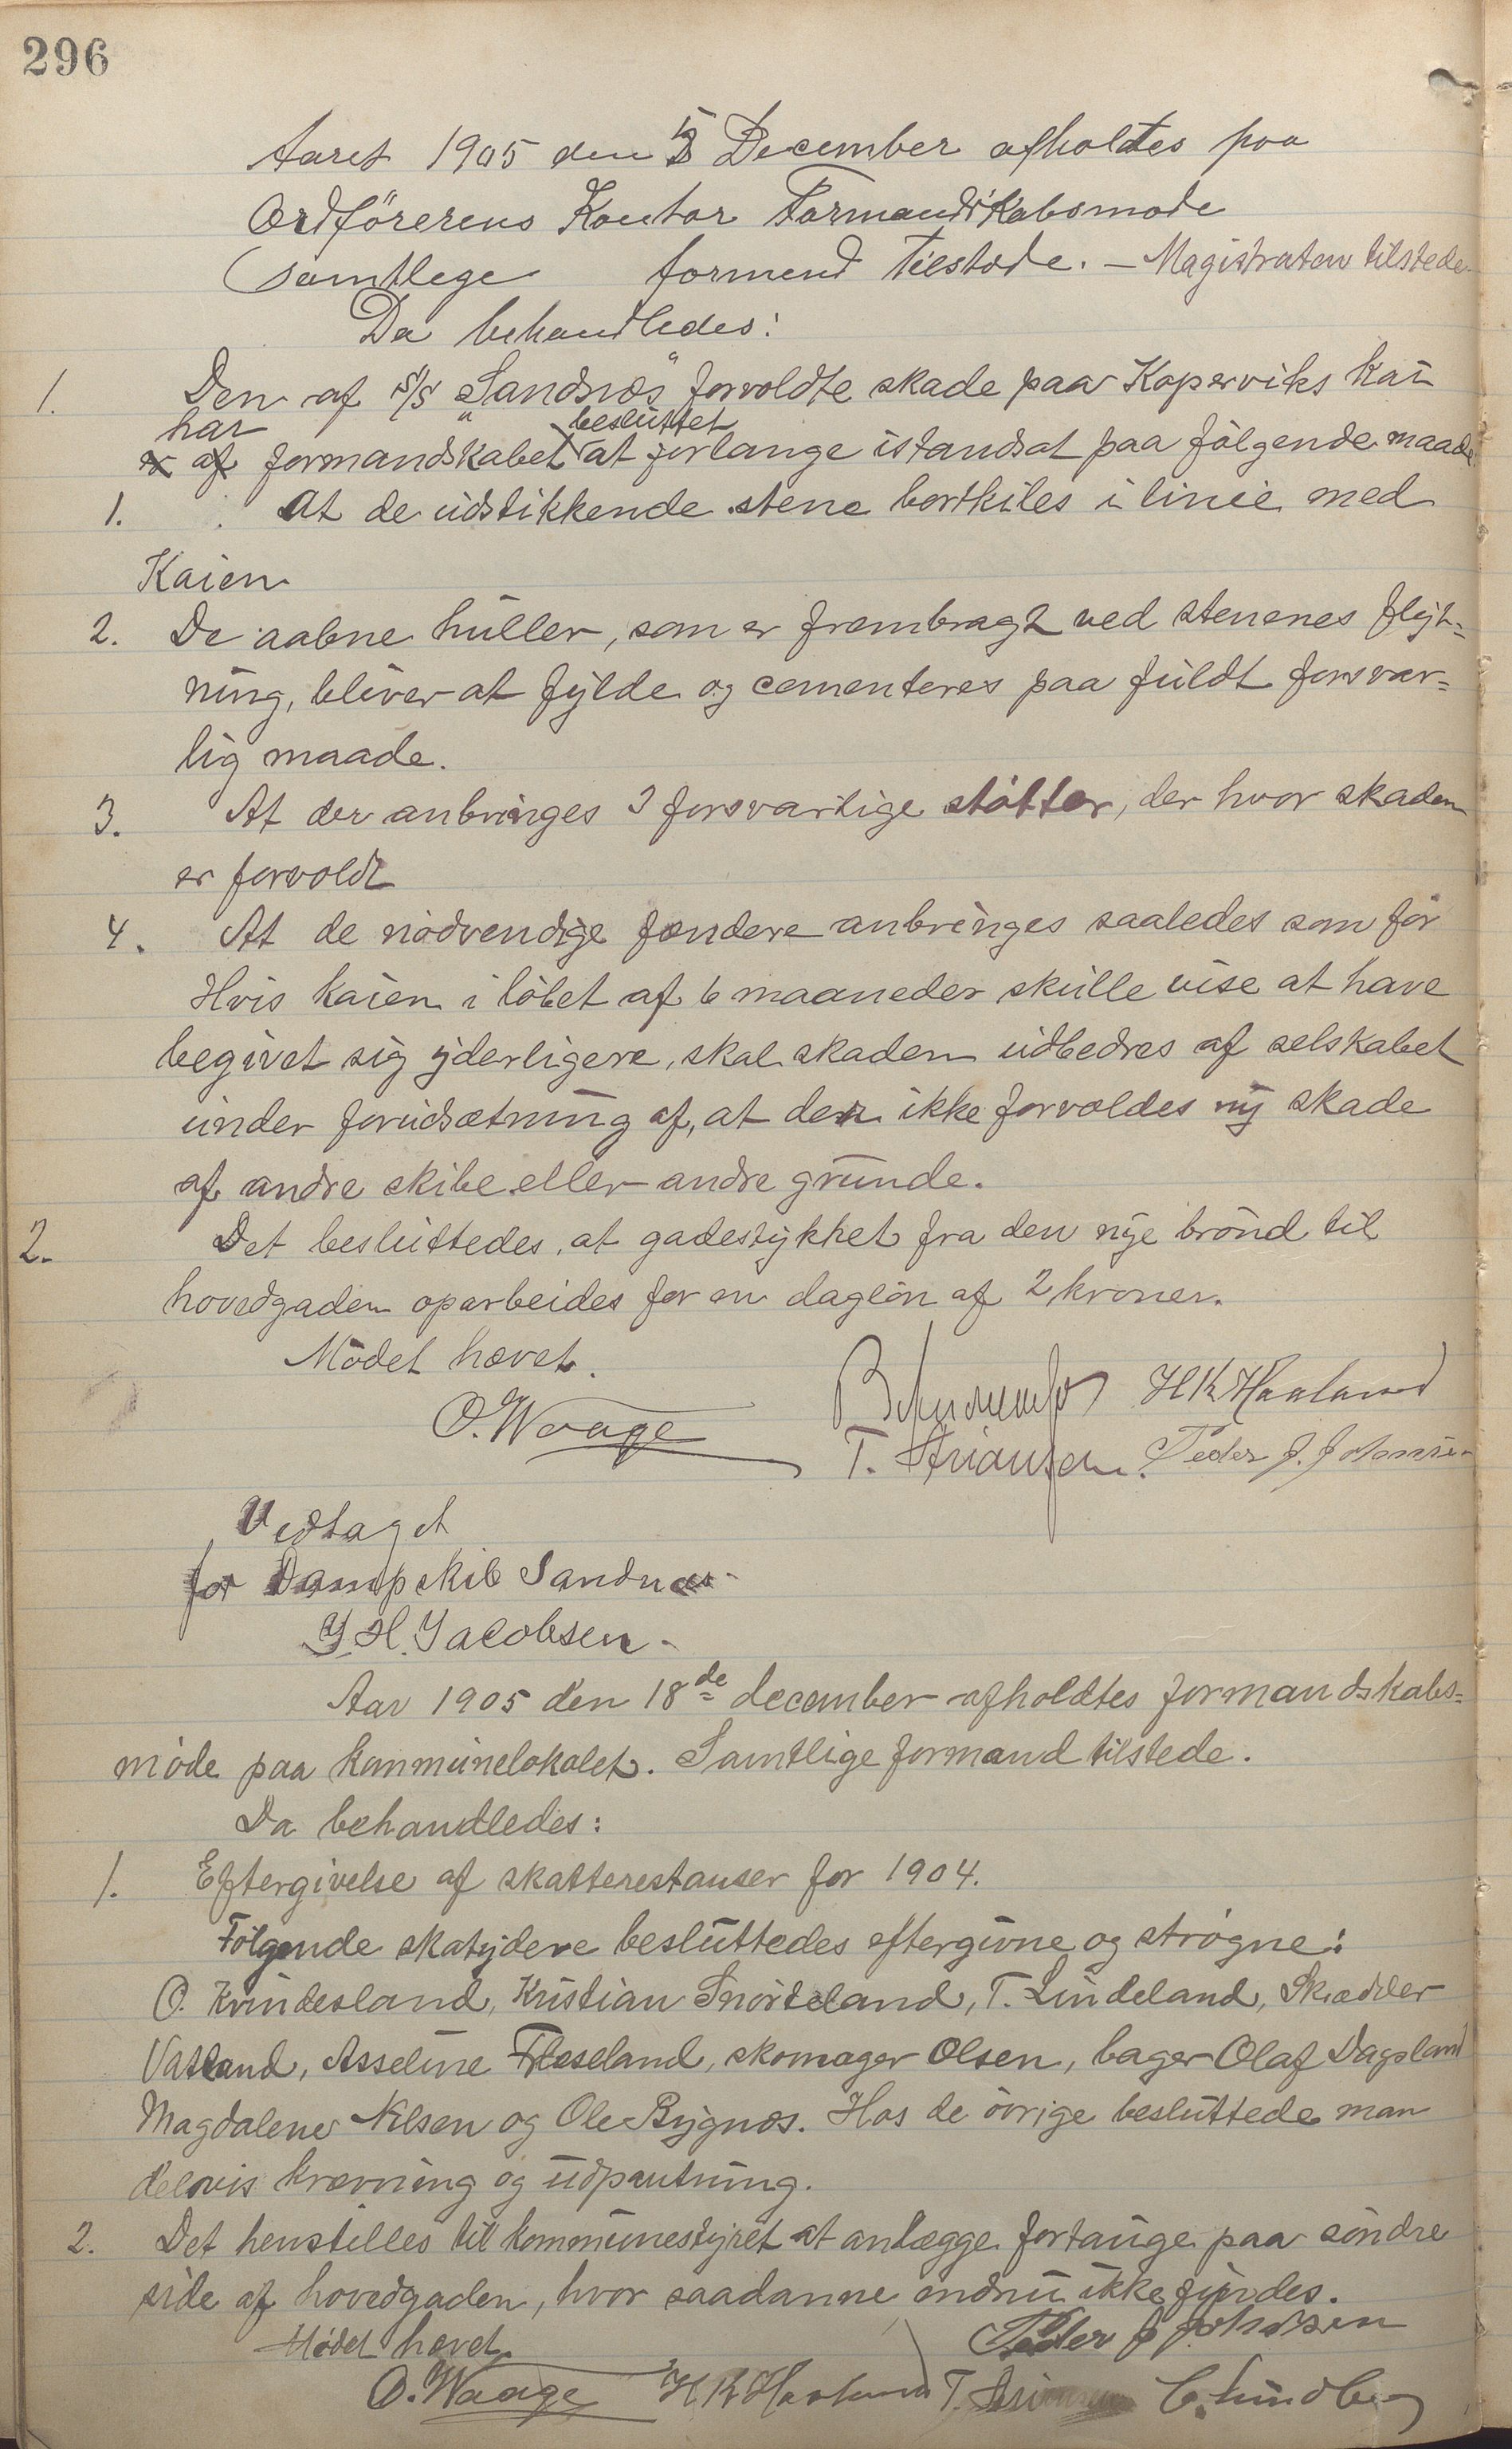 296
Aaret 1905 den 5 December afholdtes paa
Ordförerens Kontor Formandskabsmøde
Samtlege formend tilstede. – Magistraten tilstede
Da behandledes:
1. Den af S/S "Sandnæs" forvoldte skade paa Koperviks kai
har besluttet
er af formandskabet at forlange istandsat paa følgende maade
1. At de udstikkende stene bortkiles i linie med
Kaien
2. De aabne huller, som er frembragt ved stenenes flyt=
ning, bliver at fylde og cementeres paa fuldt forsvar=
lig maade.
3. At der anbringes 3 forsvarlige støtter, der hvor skaden
er forvoldt
4. At de nødvendige fendere anbringes saaledes som før
Hvis kaien i løbet af 6 maaneder skulle vise at have
begivet sig yderligere, skal skaden udbedres af selskabet
under forudsætning af, at der ikke forvoldes ny skade
af andre skibe eller andre grunde.
2. Det besluttedes, at gadestykket fra den nye brønd til
hovedgaden oparbeides for en dagløn af 2 kroner.
Mødet hævet.
H K Haaland
O. Waage T. Peder J. Johansen
Vedtaget
for Dampskib Sandnæs
J. H. Jacobsen
Aar 1905 den 18de december afholdtes formandskabs=
møde paa kommunelokalet. Samtlige formænd tilstede.
Da behandledes:
1. Eftergivelse af skatterestanser for 1904.
Følgende skatydere besluttedes eftergivne og strøgne:
O. Kvindesland, Kristian Snørteland, T. Lindeland, Skrædder
Vatland, Asseline Floseland, skomager Olsen, bager Olaf Dagsland
Magdalene Nilsen og Ole Bygnæs. Hos de øvrige besluttede man
delvis krævning og udpantning.
2. Det henstilles til kommunestyret at anlægge fortauge paa søndre
side af hovedgaden, hvor saadanne endnu ikke findes.
Mødet hævet. Peder J Johansen
O. Waage H K Haaland T. C. Lundberg